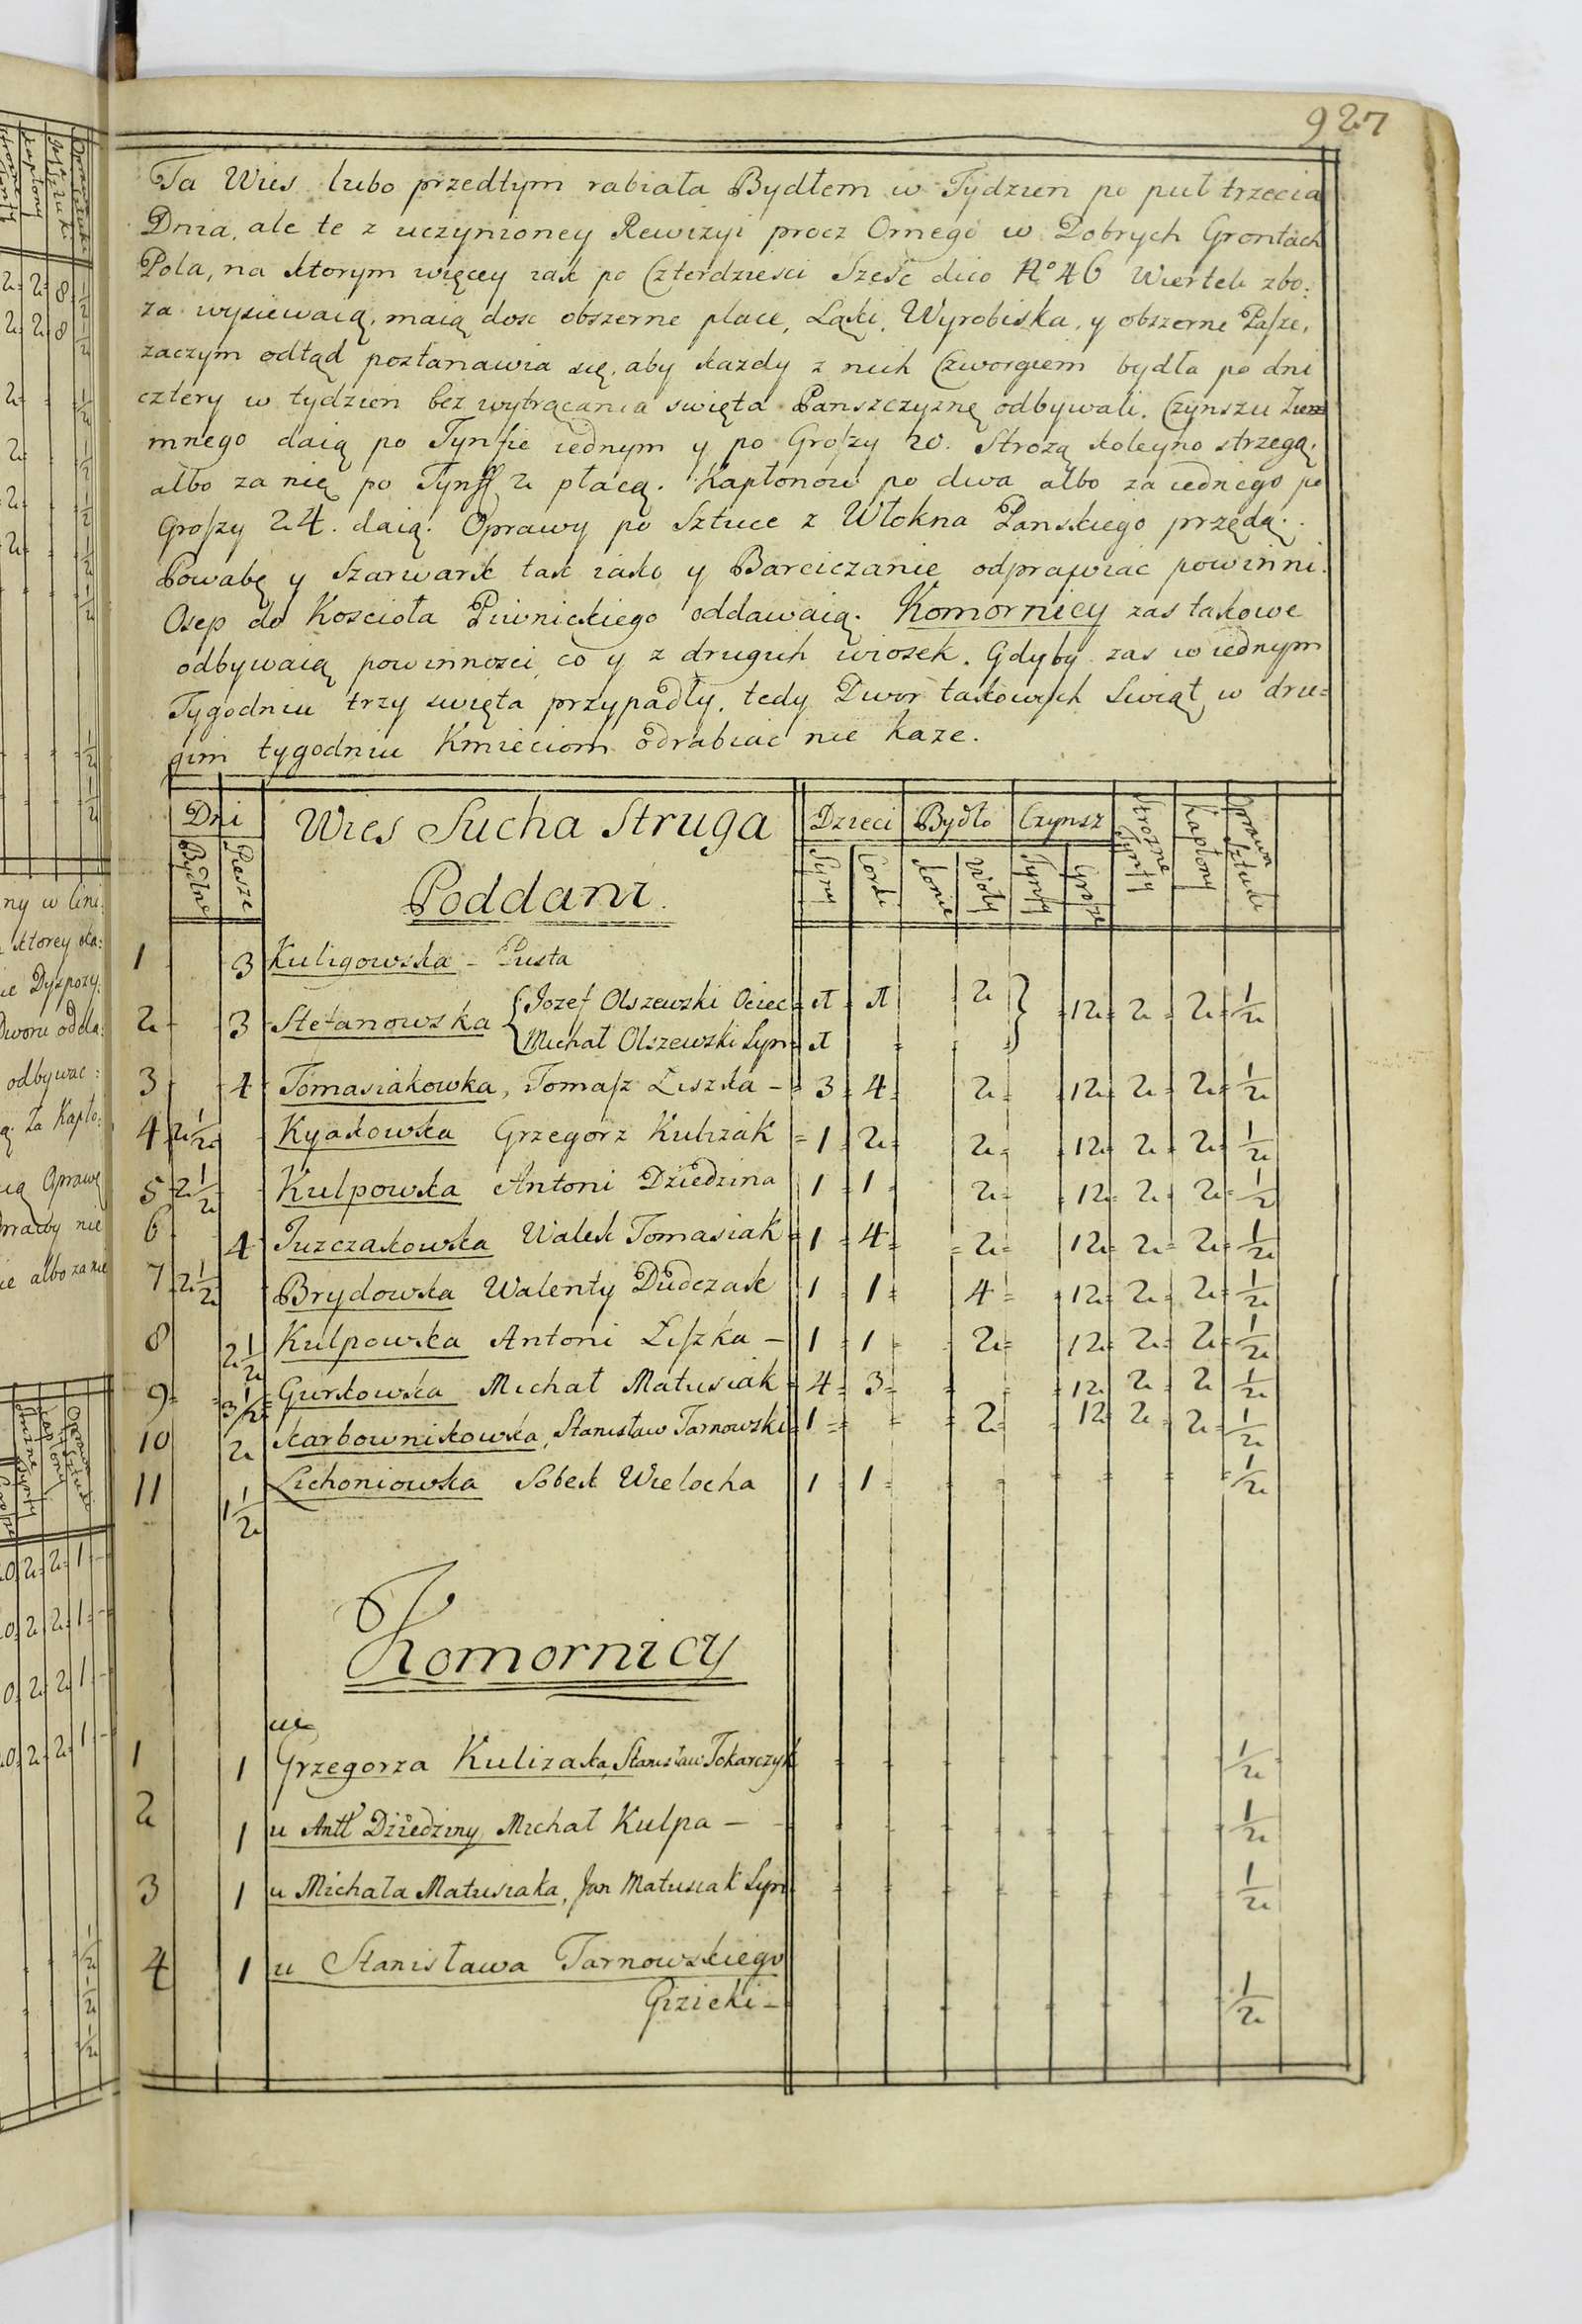 927
Ta Wies lubo przedtym rabiała Bydłem w Tydzien po puł trzecia
Dnia, ale te z uczynioney Rewizyi procz Ornego w Dobrych Grontach
Pola, na ktorym więcey iak po Czterdziesci Szesc dico No 46 Wiertek zbo:
za wysiewaią, maią dosc obszerne place, Ląki, Wyrobiska, y obszerne Pasze,
zaczym odtąd postanawia się, aby kazdy z nich Czworgiem bydła po dni
cztery w tydzien bez wytrącania swięta Panszczyznę odbywali. Czynszu Zie=
mnego daią po Tynfie iednym y po Groszy 20. Strozą koleyno strzegą,
albo za nię po Tynff 2 płacą. Kapłonow po dwa albo za iednego po
Groszy 24. daią. Oprawy po Sztuce z Włokna Panskiego przędą.
Powabę y Szarwark tak iako y Barciczanie odprawiac powinni.
Osep do Koscioła Piwnickiego oddawaią. Komornicy zas takowe
odbywaią powinnosci, co y z drugich wiosek. Gdyby zas w iednym
Tygodniu trzy swięta przypadły, tedy Dwor takowych Swiąt w dru=
gim tygodniu Kmieciom odrabiac nie kaze.
Dni Wies Sucha Struga Dzieci Bydło Czynsz Strozne Tynfy Kapłony Oprawa Sztuki
Bydlne Piesze Poddani. Syny Corki Konie Woły Tynfy Grosze
1 3 Kuligowska - Pusta
2 3 Stefanowska { Jozef Olszewski Ociec = 1 = 1 2 } 12 = 2 = 2 = 1/2
Michał Olszewski Syn = 1
3 4 Tomasiakowka, Tomasz Liszka - 3 = 4 = 2 = 12 = 2 = 2 = 1/2
4 2 1/2 Kyakowska Grzegorz Kulizak = 1 = 2 = 2 = 12 = 2 = 2 = 1/2
5 2 1/2 Kulpowska Antoni Dziedzina 1 = 1 = 2 = 12 = 2 = 2 = 1/2
6 4 Juzczakowska Walek Tomasiak = 1 = 4 = 2 = 12 = 2 = 2 = 1/2
7 2 1/2 Brydowska Walenty Dudczak 1 = 1 = 4 = 12 = 2 = 2 = 1/2
8 2 1/2 Kulpowska Antoni Liszka - 1 = 1 = 2 = 12 = 2 = 2 = 1/2
9 3 1/2 Gurkowska Michał Matusiak = 4 = 3 = 12 2 = 2 1/2
10 2 Karbownikowska, Stanisław Tarnowski = 1 = 2 = 12 2 = 2 = 1/2
11 1 1/2 Lichoniowska Sobek Wielocha 1 = 1 = 1/2
Komornicy
u
1 1 Grzegorza Kulizaka, Stanisław Tokarczyk 1/2
2 1 u Antt Dziedziny Michał Kulpa - 1/2
3 1 u Michała Matusiaka, Jan Matusiak Syn 1/2
4 1 u Stanisława Tarnowskiego
Gizicki - 1/2